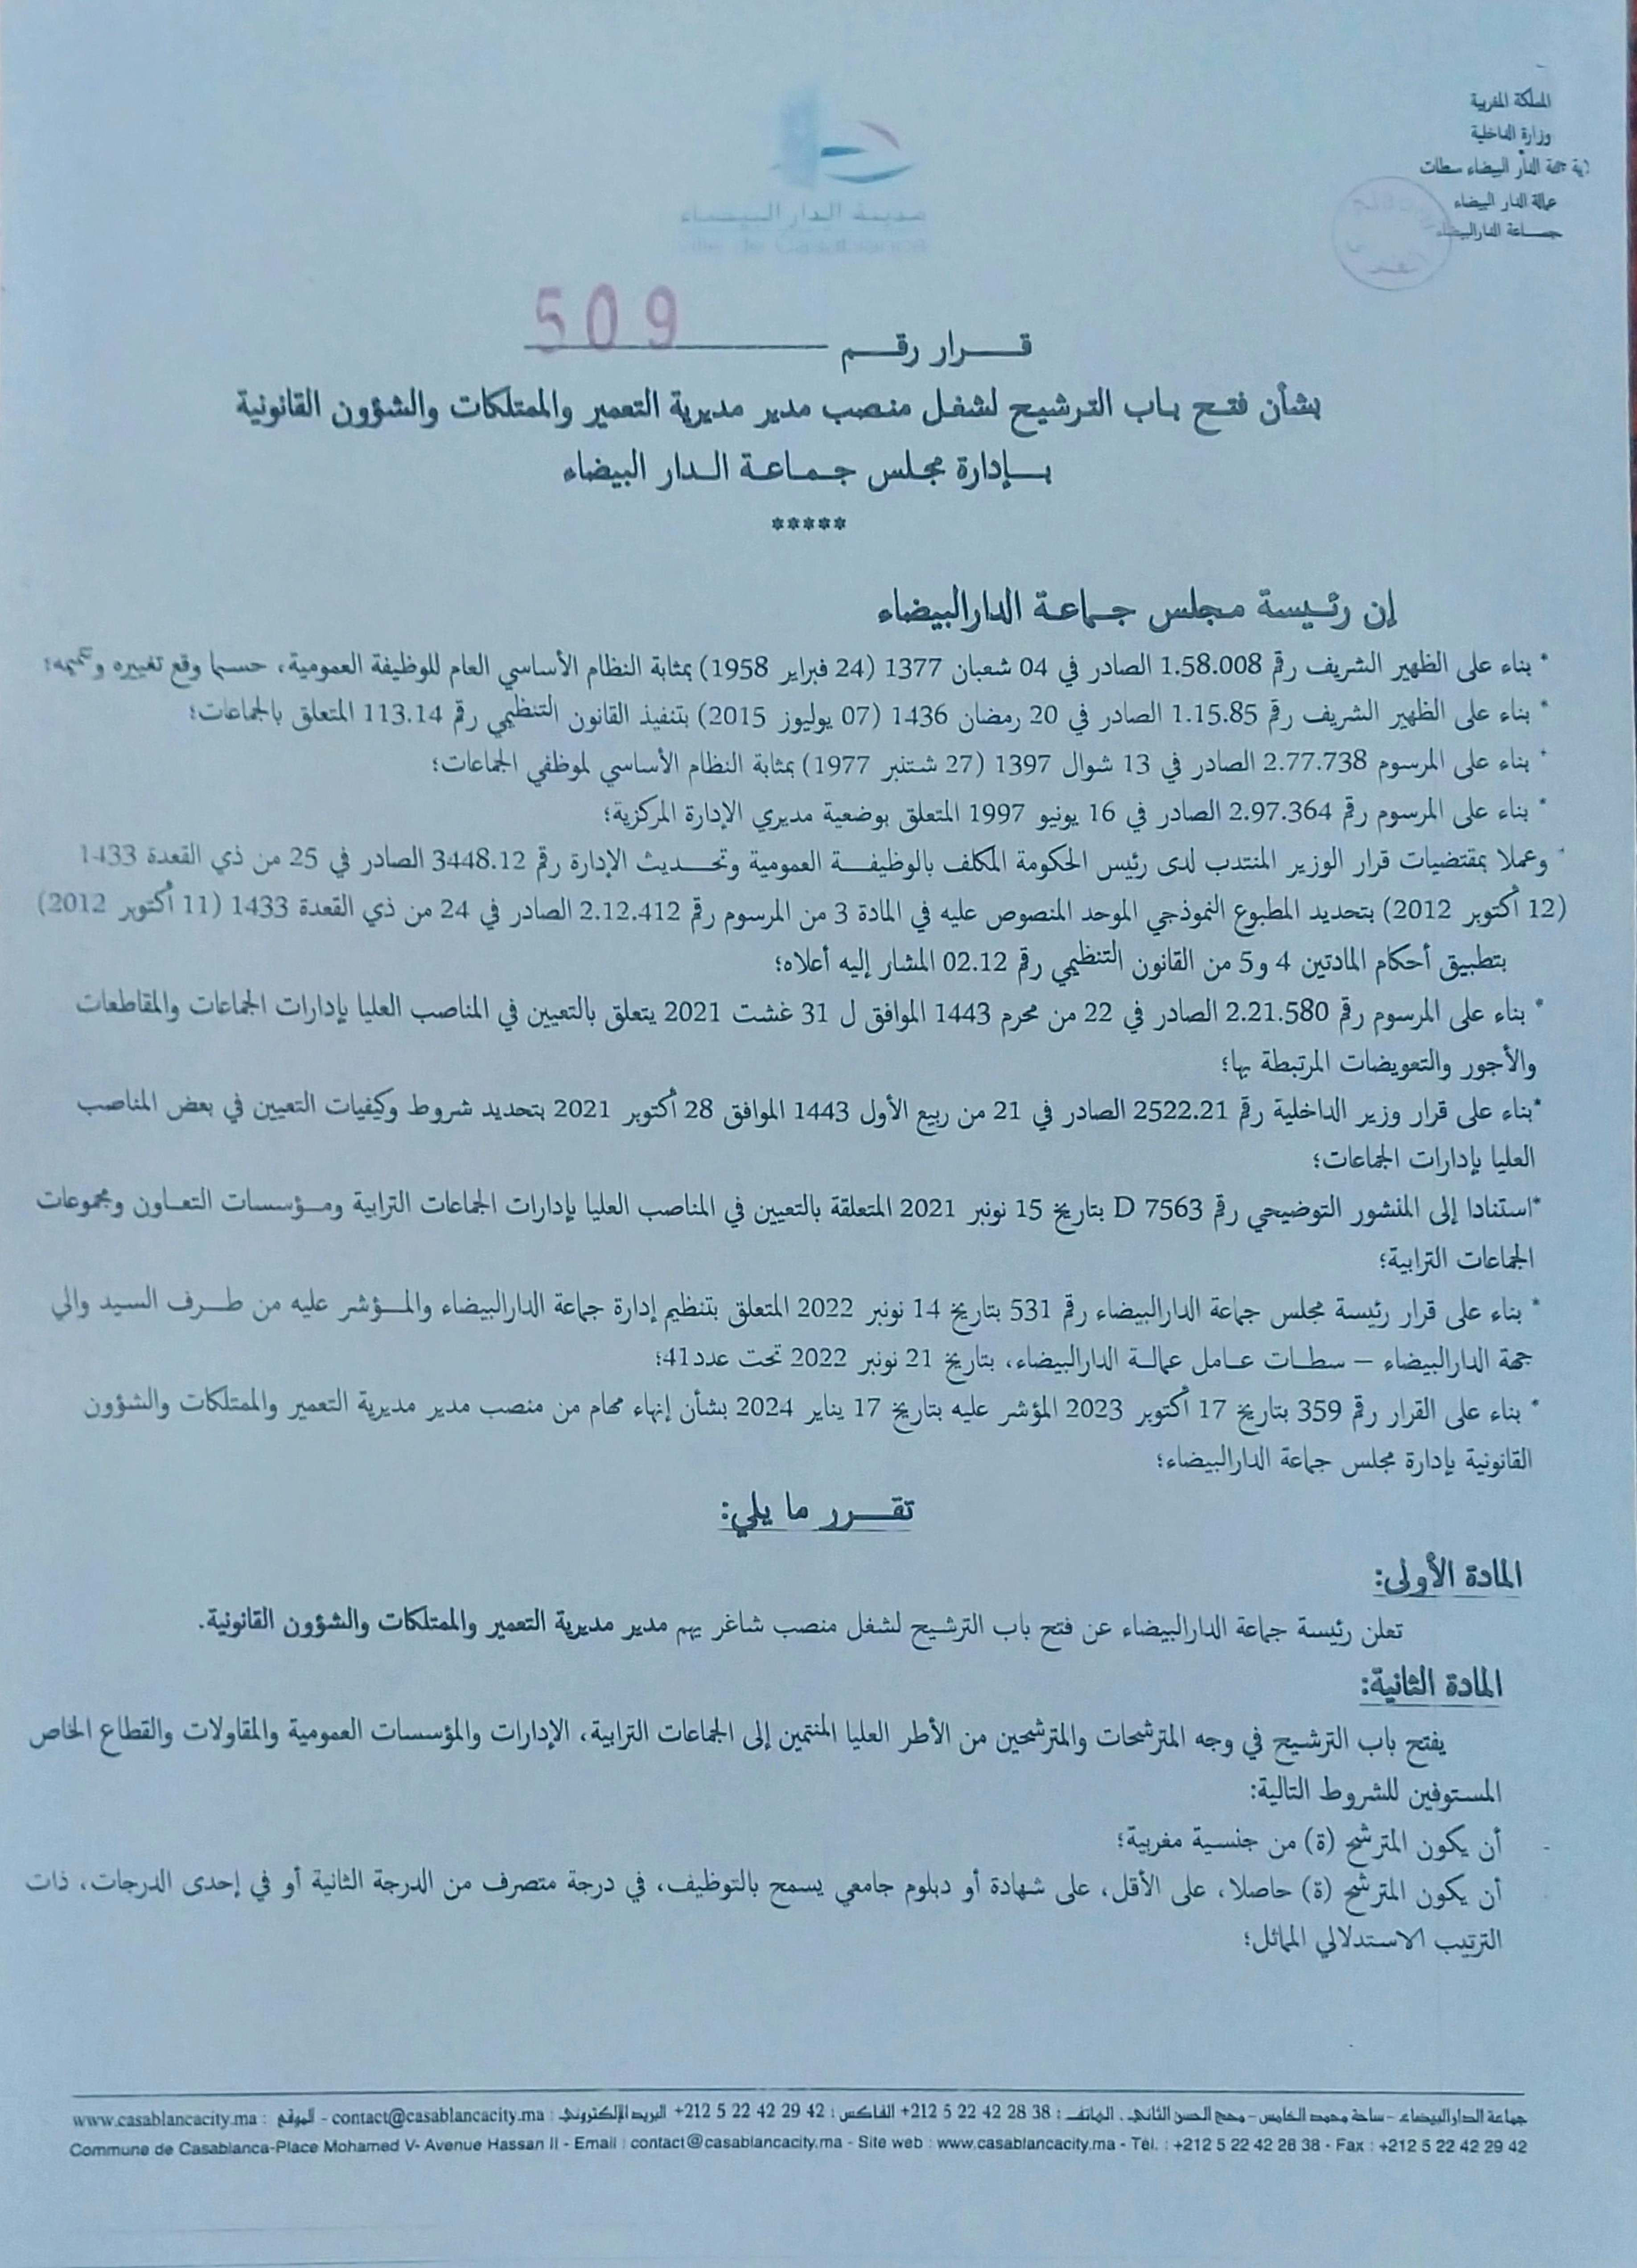 المملكة المغربية
وزارة الداخلية
ية جهة الدار البيضاء سطات
عمالة الدار البيضاء
جمـــاعة الدارالبيضاء
مدينة الدار البيضاء
Ville de Casablanca
قـــرار رقـــم 509
بشأن فتح باب الترشيح لشغل منصب مدير مديرية التعمير والممتلكات والشؤون القانونية
بـإدارة مجلس جـماعة الـدار البيضاء
*****
إن رئـيسة مـجلس جـماعـة الدارالبيضاء
* بناء على الظهير الشريف رقم 1.58.008 الصادر في 04 شعبان 1377 (24 فبراير 1958) بمثابة النظام الأساسي العام للوظيفة العمومية، حسبما وقع تغييره وتتميمه؛
* بناء على الظهير الشريف رقم 1.15.85 الصادر في 20 رمضان 1436 (07 يوليوز 2015) بتنفيذ القانون التنظيمي رقم 113.14 المتعلق بالجماعات؛
* بناء على المرسوم 2.77.738 الصادر في 13 شوال 1397 (27 شتنبر 1977) بمثابة النظام الأساسي لموظفي الجماعات؛
* بناء على المرسوم رقم 2.97.364 الصادر في 16 يونيو 1997 المتعلق بوضعية مديري الإدارة المركزية؛
* وعملا بمقتضيات قرار الوزير المنتدب لدى رئيس الحكومة المكلف بالوظيفـــة العمومية وتحـــديث الإدارة رقم 3448.12 الصادر في 25 من ذي القعدة 1433
(12 أكتوبر 2012) بتحديد المطبوع النموذجي الموحد المنصوص عليه في المادة 3 من المرسوم رقم 2.12.412 الصادر في 24 من ذي القعدة 1433 (11 أكتوبر 2012)
بتطبيق أحكام المادتين 4 و5 من القانون التنظيمي رقم 02.12 المشار إليه أعلاه؛
* بناء على المرسوم رقم 2.21.580 الصادر في 22 من محرم 1443 الموافق ل 31 غشت 2021 يتعلق بالتعيين في المناصب العليا بإدارات الجماعات والمقاطعات
والأجور والتعويضات المرتبطة بها؛
*بناء على قرار وزير الداخلية رقم 2522.21 الصادر في 21 من ربيع الأول 1443 الموافق 28 أكتوبر 2021 بتحديد شروط وكيفيات التعيين في بعض المناصب
العليا بإدارات الجماعات؛
*استنادا إلى المنشور التوضيحي رقم D 7563 بتاريخ 15 نونبر 2021 المتعلقة بالتعيين في المناصب العليا بإدارات الجماعات الترابية ومـؤسسات التعـاون ومجموعات
الجماعات الترابية؛
* بناء على قرار رئيسة مجلس جماعة الدارالبيضاء رقم 531 بتاريخ 14 نونبر 2022 المتعلق بتنظيم إدارة جماعة الدارالبيضاء والمـــؤشر عليه من طـــرف السيد والي
جهة الدارالبيضاء – سطـات عـامل عمالـة الدارالبيضاء، بتاريخ 21 نونبر 2022 تحت عدد41؛
* بناء على القرار رقم 359 بتاريخ 17 أكتوبر 2023 المؤشر عليه بتاريخ 17 يناير 2024 بشأن إنهاء مهام من منصب مدير مديرية التعمير والممتلكات والشؤون
القانونية بإدارة مجلس جماعة الدارالبيضاء؛
تقــــرر ما يلي:
المادة الأولى:
تعلن رئيسة جماعة الدارالبيضاء عن فتح باب الترشيح لشغل منصب شاغر يهم مدير مديرية التعمير والممتلكات والشؤون القانونية.
المادة الثانية:
يفتح باب الترشيح في وجه المترشحات والمترشحين من الأطر العليا المنتمين إلى الجماعات الترابية، الإدارات والمؤسسات العمومية والمقاولات والقطاع الخاص
المستوفين للشروط التالية:
- أن يكون المترشح (ة) من جنسية مغربية؛
- أن يكون المترشح (ة) حاصلا، على الأقل، على شهادة أو دبلوم جامعي يسمح بالتوظيف، في درجة متصرف من الدرجة الثانية أو في إحدى الدرجات، ذات
الترتيب الاستدلالي المماثل؛
جماعة الدارالبيضاء - ساحة محمد الخامس - محج الحسن الثاني . الهاتف : 38 28 42 22 5 212+ الفاكس : 42 29 42 22 5 212+ البريد الإلكتروني : contact@casablancacity.ma - الموقع : www.casablancacity.ma
Commune de Casablanca-Place Mohamed V- Avenue Hassan II - Email : contact@casablancacity.ma - Site web : www.casablancacity.ma - Tél. : +212 5 22 42 28 38 - Fax : +212 5 22 42 29 42